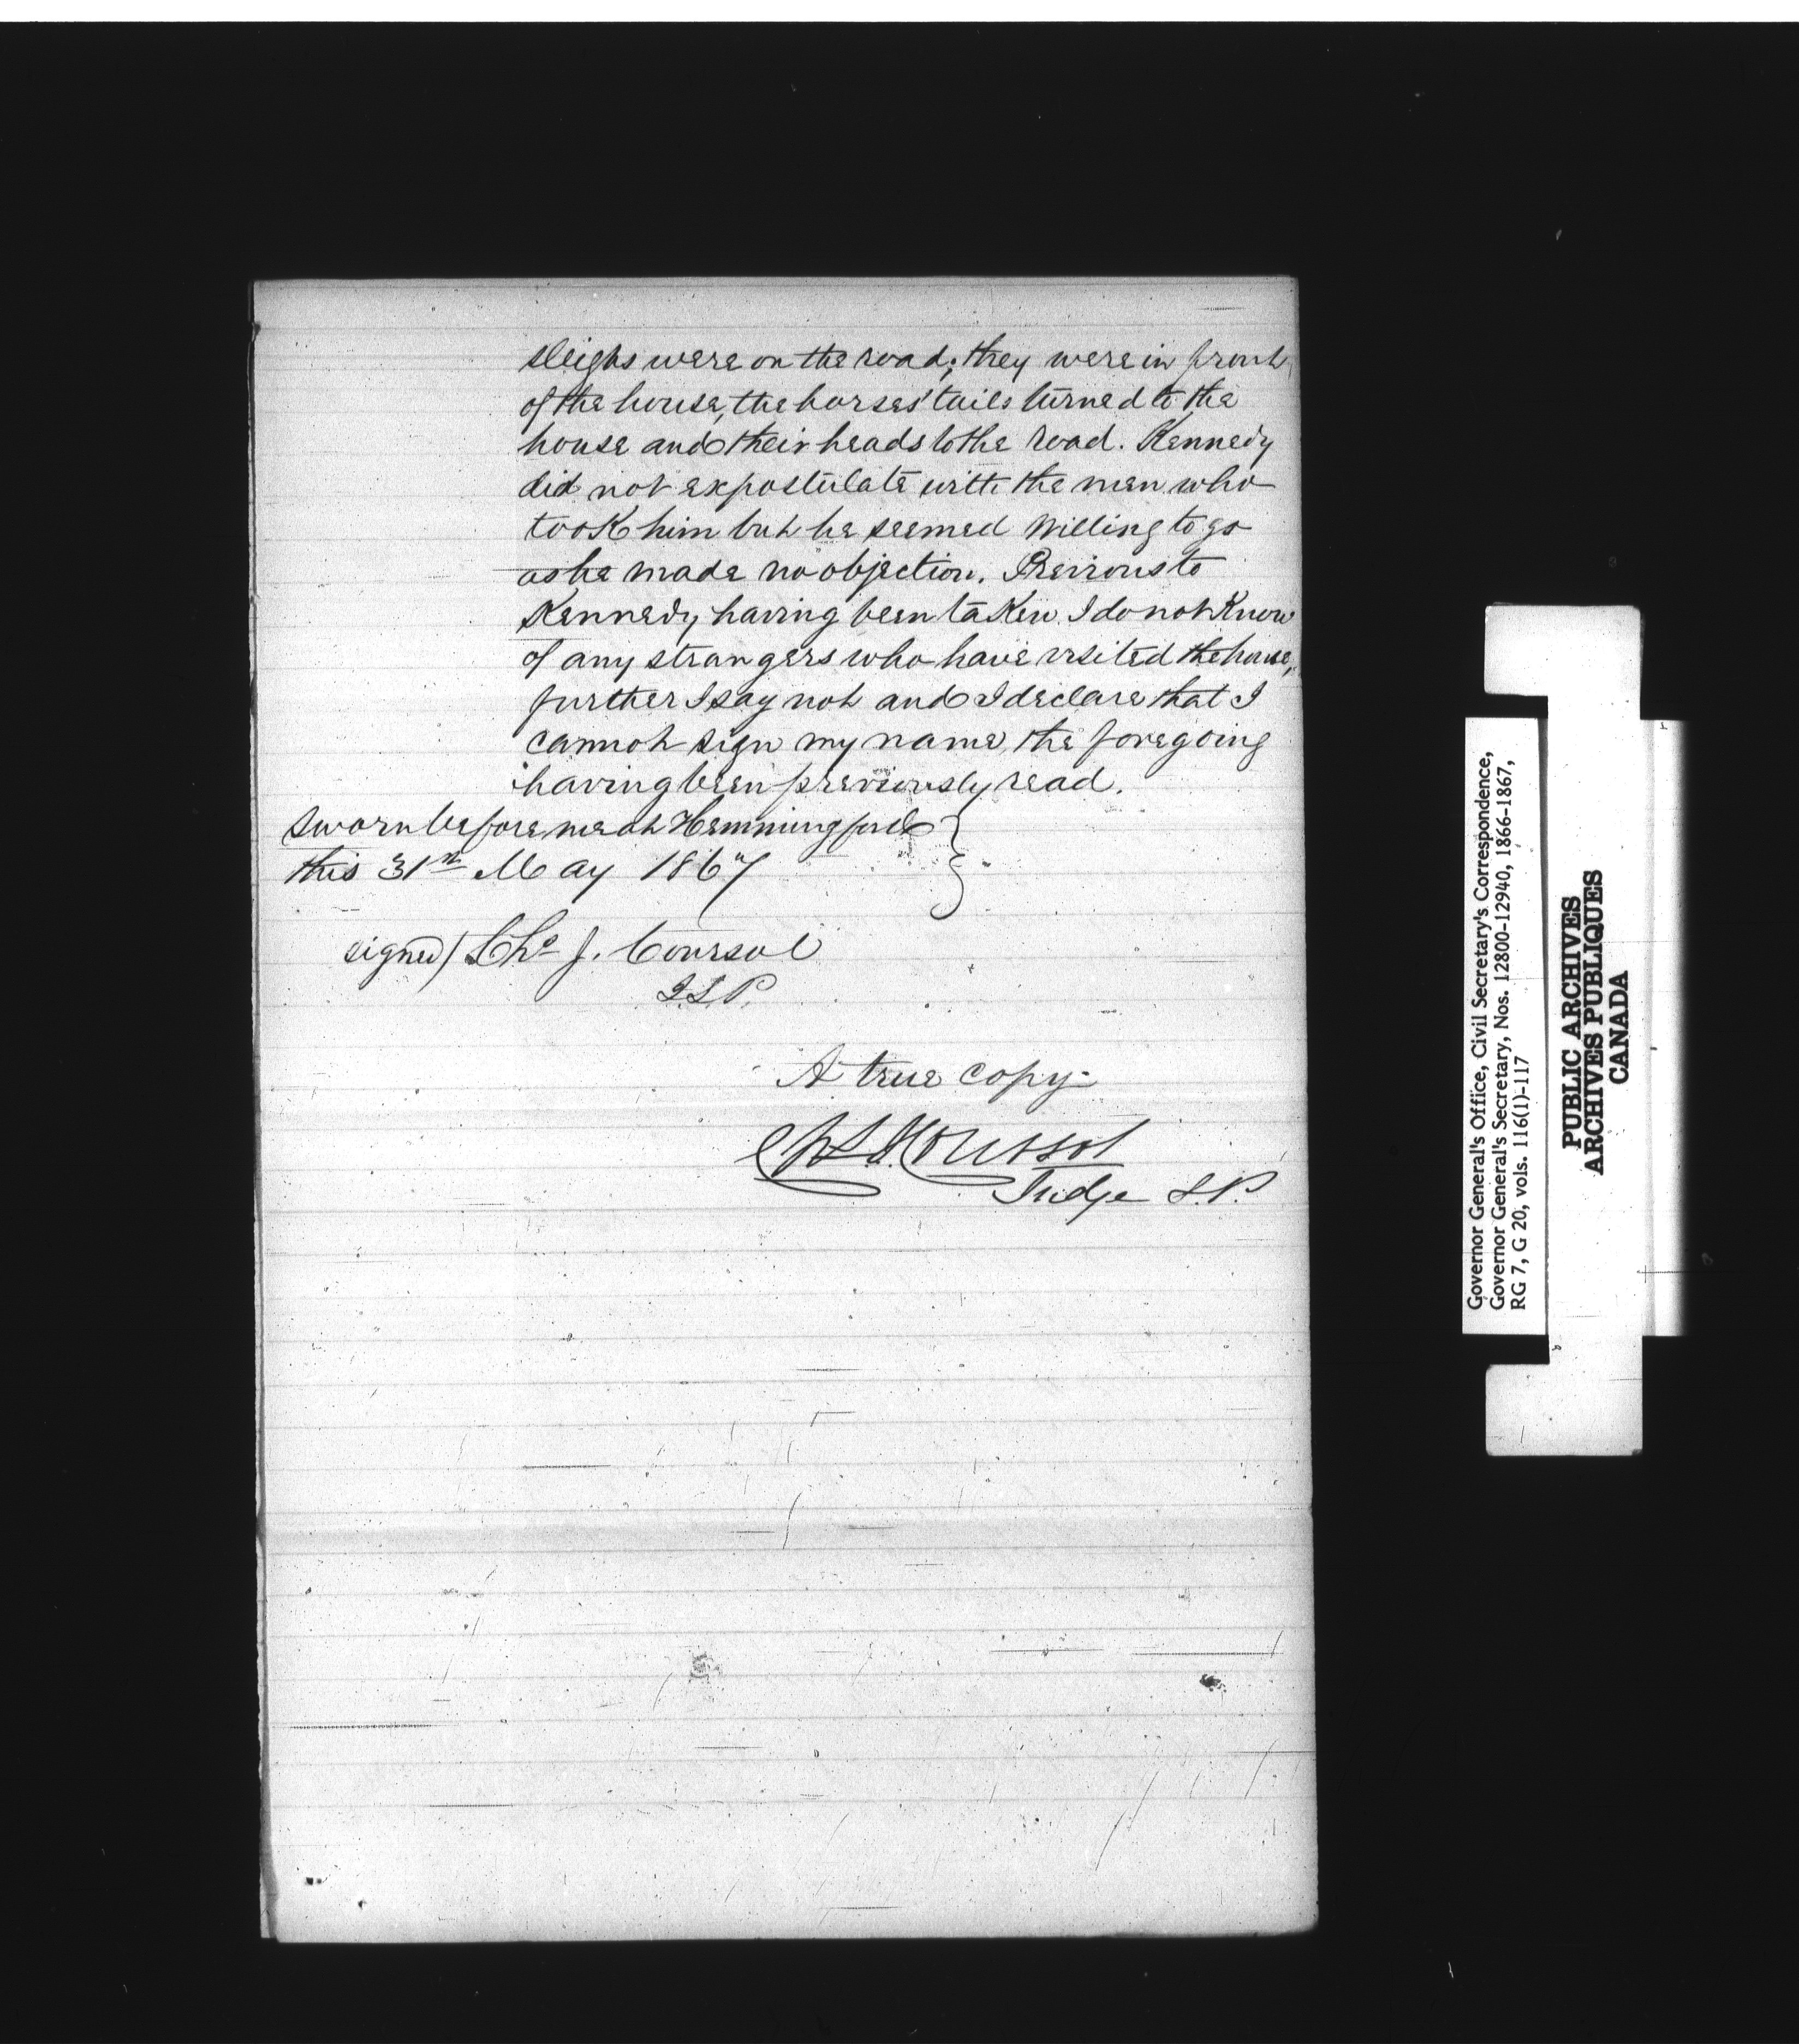 sleighs were on the road; they were in front
of the house, the horses' tails turned to the
house and their heads to the road. Kennedy
did not expostulate with the men who
took him but he seemed willing to go
as he made no objection. Previous to
Kennedy having been taken I do not know
of any strangers who have visited the house,
further I say not and I declare that I
cannot sign my name, the foregoing
having been previously read.
Sworn before me at Hemmingford
this 31st May 1867
signed) Chs J. Coursol
J.S.P.
A true copy
Chs J. Coursol
Judge S.P.
Governor General's Office, Civil Secretary's Correspondence,
Governor General's Secretary, Nos. 12800-12940, 1866-1867,
RG 7, G 20, vols. 116(1)-117
PUBLIC ARCHIVES
ARCHIVES PUBLIQUES
CANADA